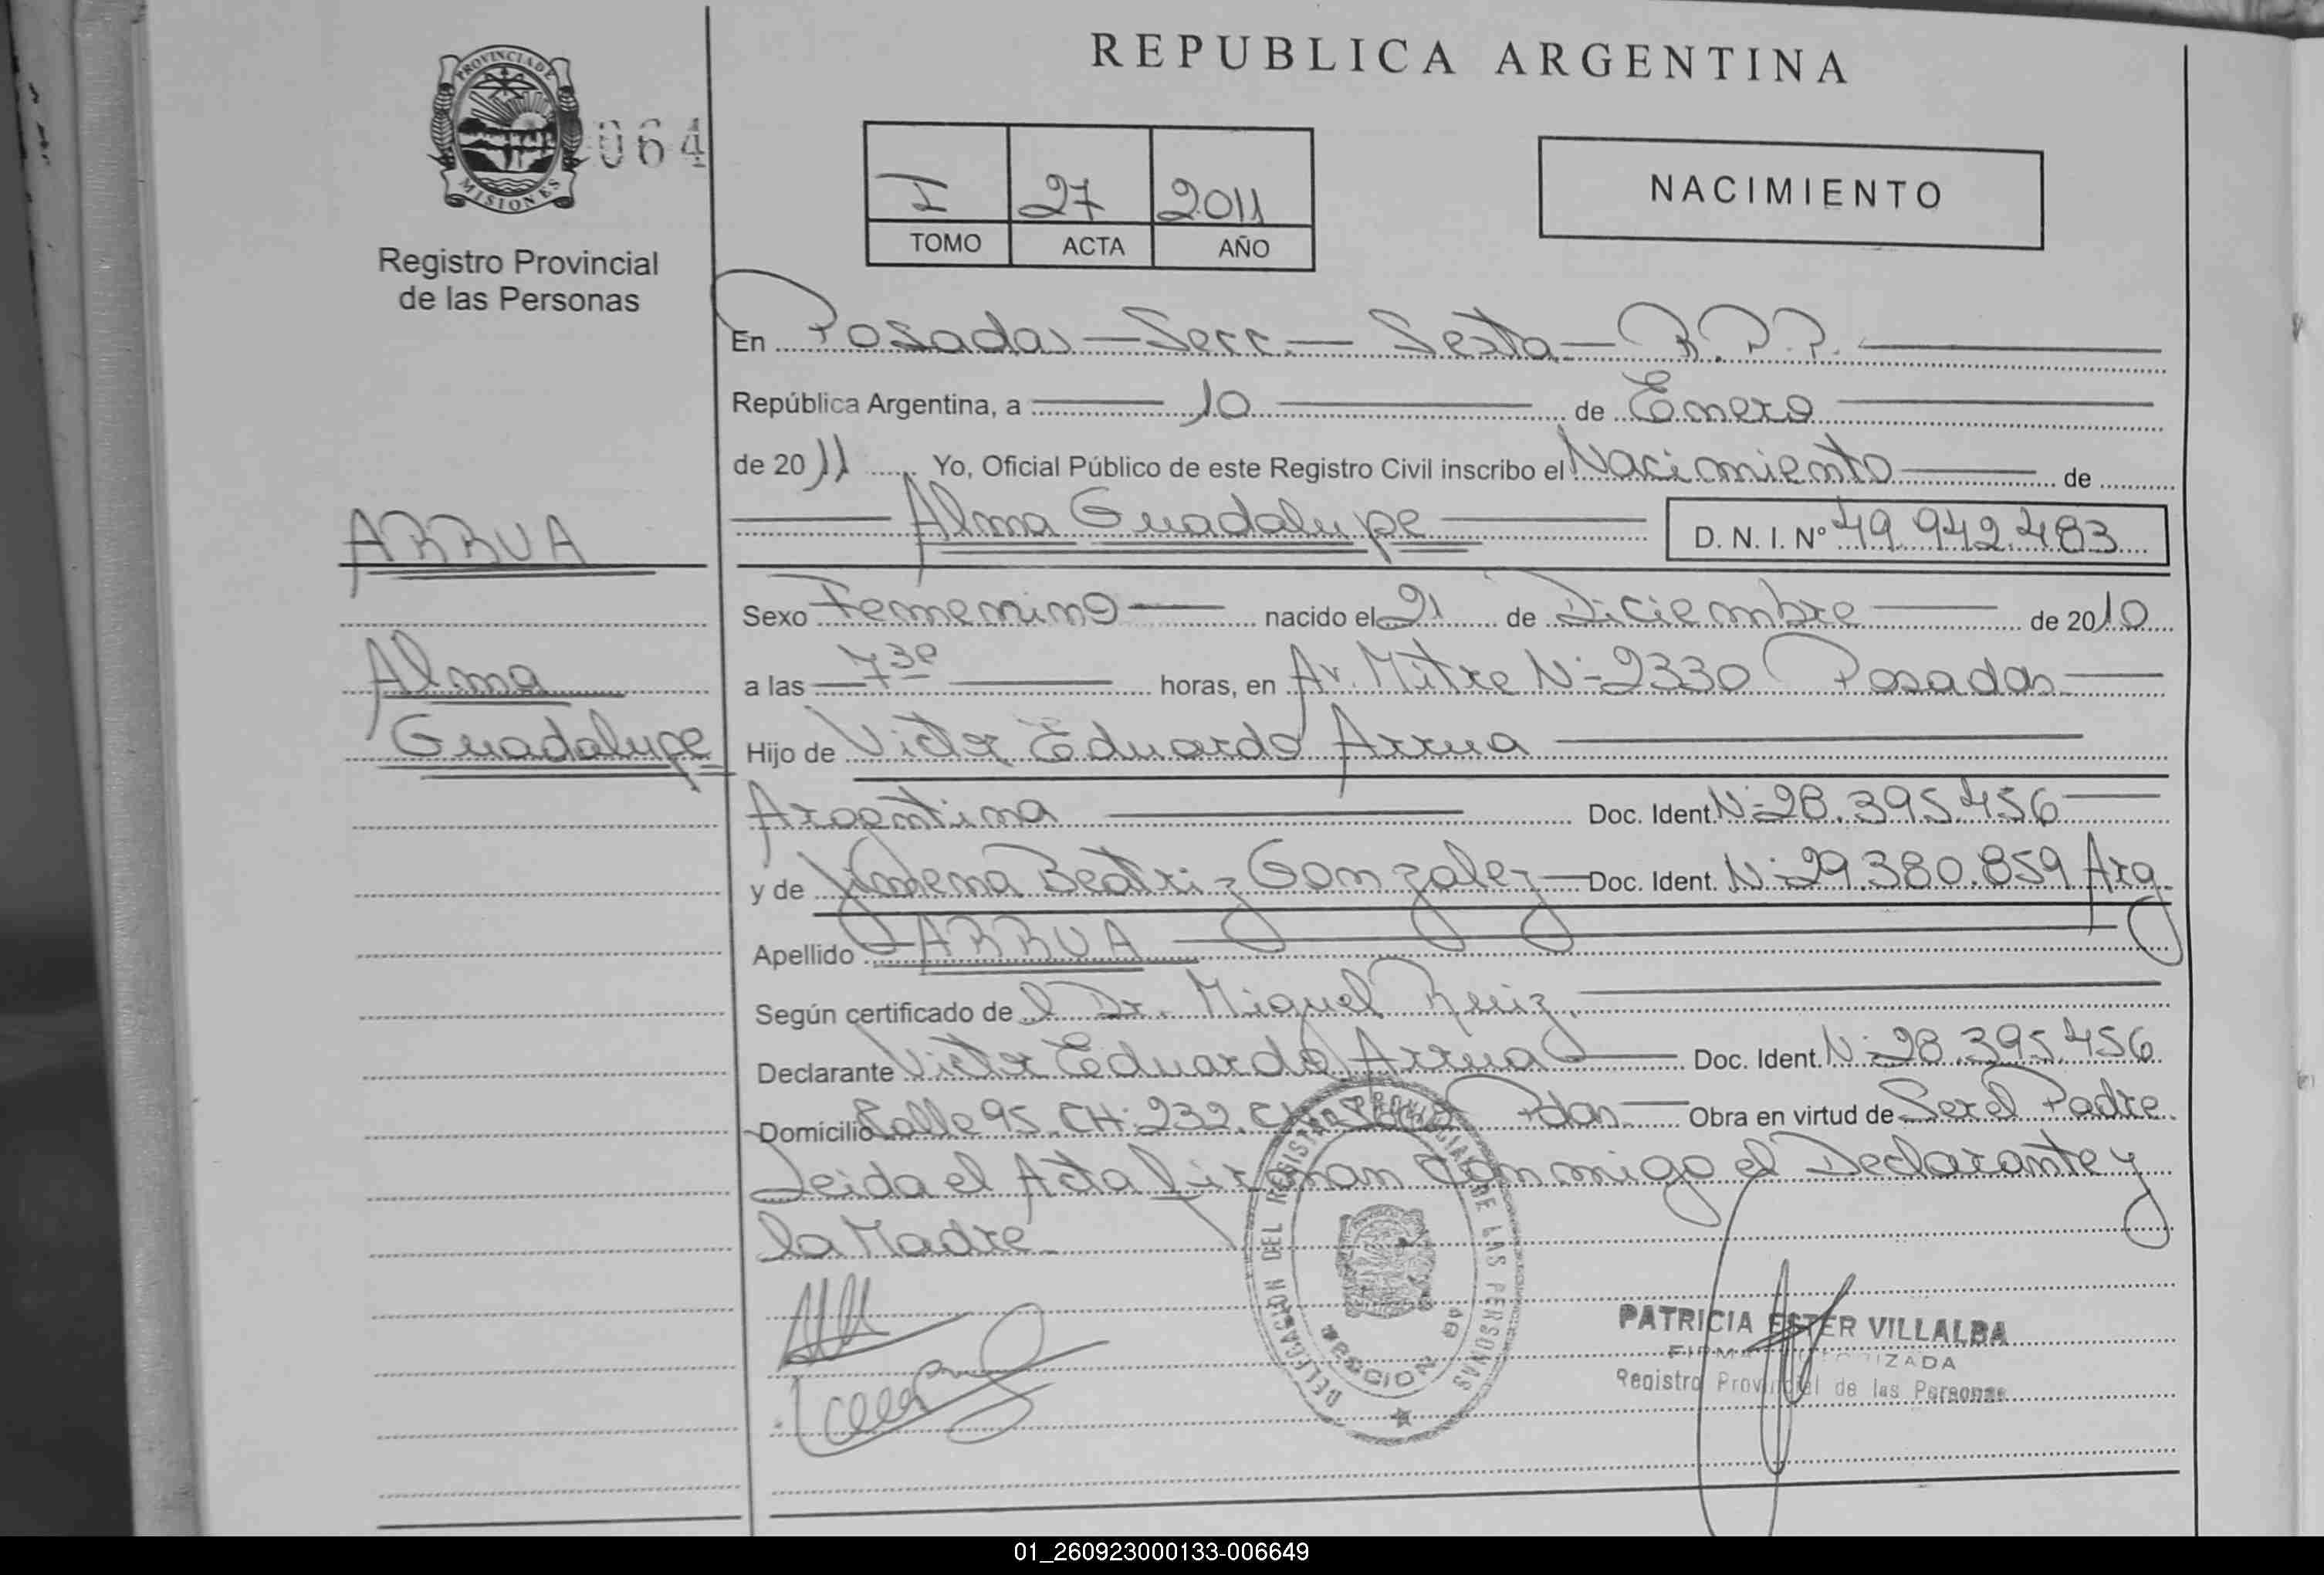 REPUBLICA ARGENTINA
PROVINCIA DE
MISIONES
064
Registro Provincial
de las Personas
I 27 2011
TOMO ACTA AÑO
NACIMIENTO
En Posadas - Secc. - Sexta - R.P.P.
República Argentina, a 10 de Enero
de 2011 Yo, Oficial Público de este Registro Civil inscribo el Nacimiento de
Alma Guadalupe D. N. I. Nº 49.942.483
ARRUA
Alma
Guadalupe
Sexo Femenino nacido el 21 de Diciembre de 2010
a las 7 30 horas, en Av. Mitre Nº 2330 Posadas
Hijo de Victor Eduardo Arrua
Argentina Doc. Ident. Nº 28.395.456
y de Jimena Beatriz Gonzalez Doc. Ident. Nº 29.380.859 Arg.
Apellido ARRUA
Según certificado del Dr. Miguel Ruiz.
Declarante Victor Eduardo Arrua Doc. Ident. Nº 28.395.456
Domicilio Calle 95. CH: 232. Pdas. Obra en virtud de Ser el Padre
Leida el Acta firman conmigo el Declarante y
la Madre.
DELEGACION DEL REGISTRO PROVINCIAL DE LAS PERSONAS
SECCION 6a
PATRICIA ESTER VILLALBA
FIRMA AUTORIZADA
Registro Provincial de las Personas
01_260923000133-006649